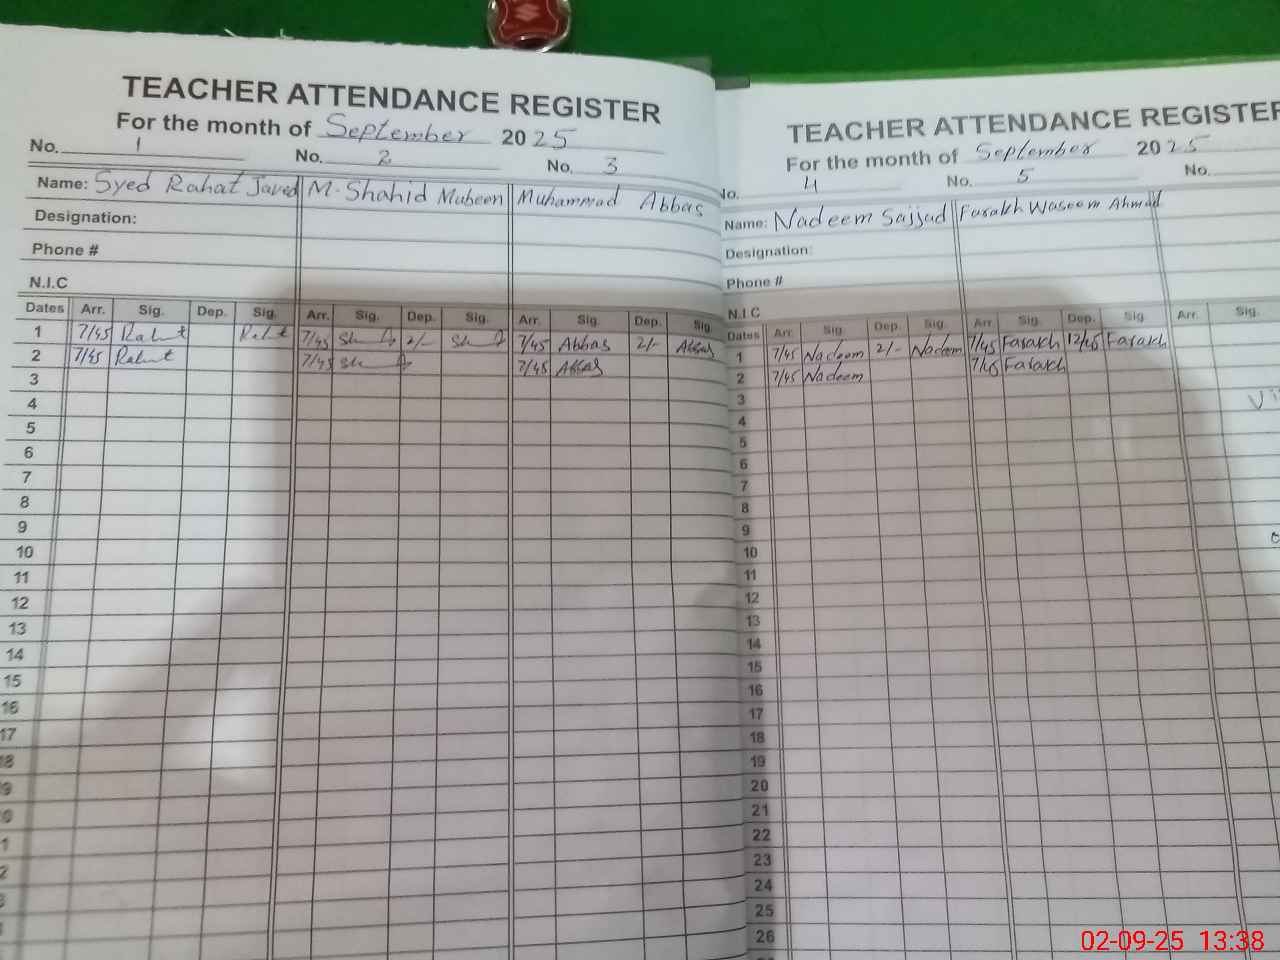 TEACHER ATTENDANCE REGISTER
For the month of September 2025
No. 1 No. 2 No. 3
Name: Syed Rahat Javed M. Shahid Mubeen Muhammad Abbas
Designation:
Phone #
N.I.C
Dates Arr. Sig. Dep. Sig. Arr. Sig. Dep. Sig. Arr. Sig. Dep. Sig.
1 7/45 Rahat Rahat 7/45 2/- 7/45 Abbas 2/- Abbas
2 7/45 Rahat 7/45 7/45 Abbas
3
4
5
6
7
8
9
10
11
12
13
14
15
16
17
18
9
0
1
2
TEACHER ATTENDANCE REGISTER
For the month of September 2025
No. 4 No. 5 No.
Name: Nadeem Sajjad Farakh Waseem Ahmad
Designation:
Phone #
N.I.C
Dates Arr. Sig. Dep. Sig. Arr. Sig. Dep. Sig. Arr. Sig.
1 7/45 Nadeem 2/- Nadeem 7/45 Farakh 12/45 Farakh
2 7/45 Nadeem 7/45 Farakh
3
4
5
6
7
8
9
10
11
12
13
14
15
16
17
18
19
20
21
22
23
24
25
26
02-09-25 13:38